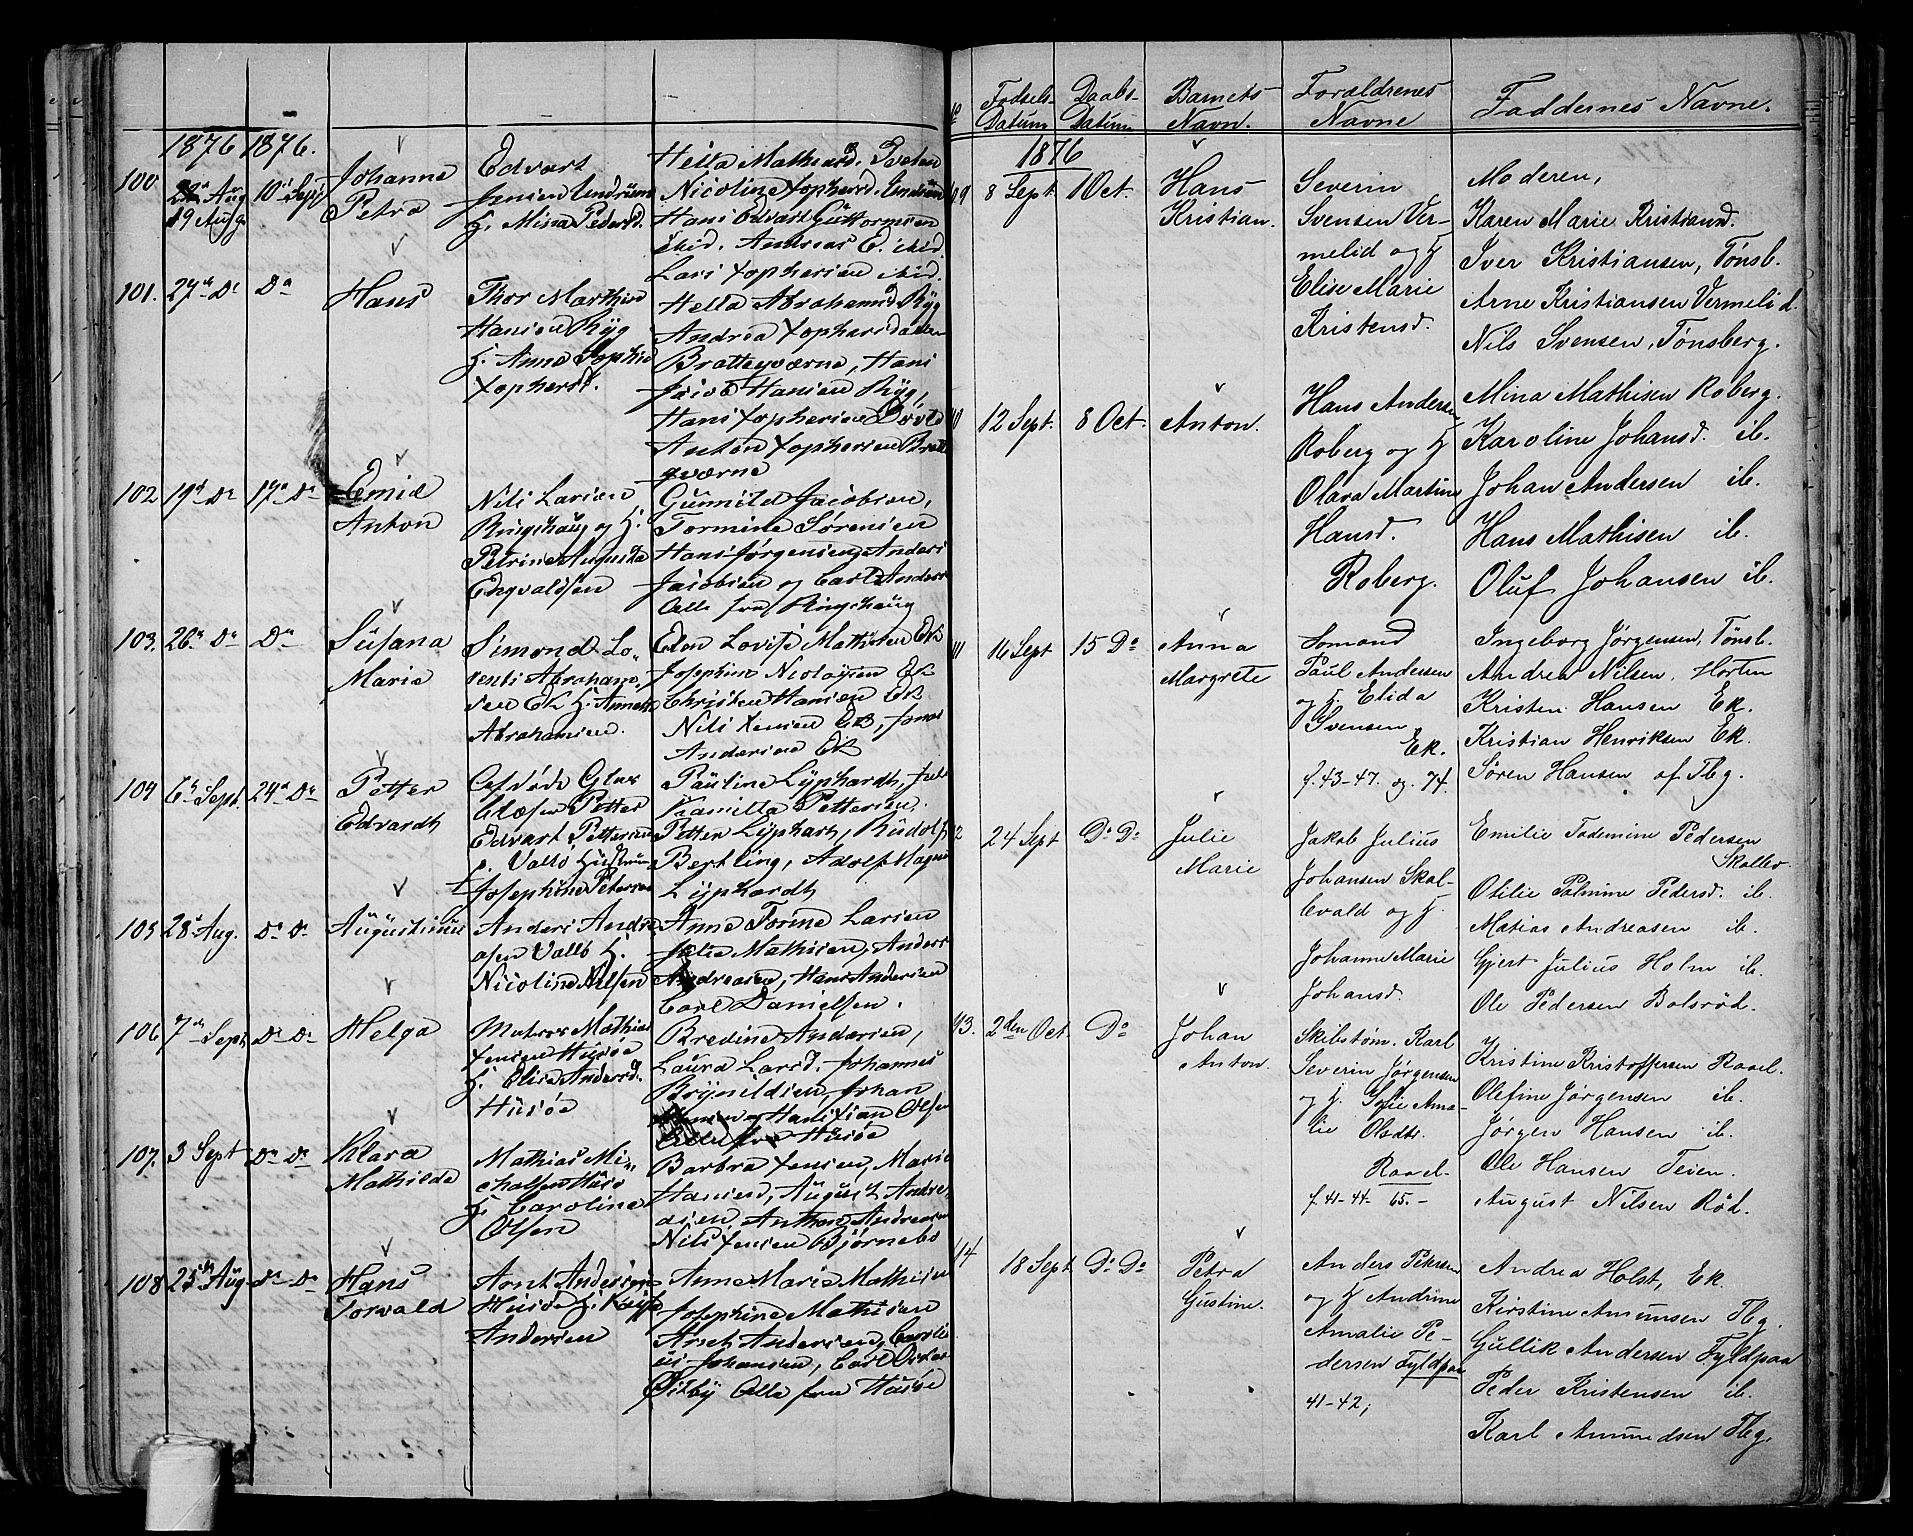 1876 1876.
100 19 Aug. 10 Sept. Johanne Petra
Edvart
Jensen
H. Mina Pedersd.
Hella Mathisd.
Nicoline Xophersd.
Hans Edvart Guttormsen
ibid. Andreas E. ibid.
Lars Xophersen ibid.
101. 27 Do Do Hans
Thor Marthin
Hansen Ryg
H. Anne Sophie
Xophersd.
Hella Abrahamsd Ryg
Andrea Xophersdatter
Bratteqværne, Hans
Jacob Hansen Ryg,
Hans Xophersen
Anton Xophersen Bratte
qværne
102 19 Do 17 Do Emid
Anton
Nils Larsen
Ringshaug og H.
Petrine Augusta
Engvaldsen
Gunnild Jacobsen,
Tormine Sørensen
Hans Jørgensen Anders
Jacobsen og Carl Anders
Alle fra Ringshaug
103. 26 Do Do Susana
Marie
Simond Lo-
rents Abraham-
sen Ek H. Annette
Abrahamsen.
Elen Lovise Mathisen Ek
Josephine Nicolaysen Ek
Christen Hansen Ek
Nils Jensen Ek, Jonas
Andersen Ek
104 6 Sept. 24 Do Petter
Edvardt
Afdøde
Petter
Edvart Pettersen
Vallø
Josephine Petersen
Pauline Lyphardt,
Kamilla Pettersen.
Petter Lyphart, Rudolf
Bertling, Adolf Magnus
Lyphardt
105 28 Aug. Do Do Augustinus
Anders Andre
asen Vallø H.
Nicoline Nilsen
Anne Torine Larsen
Julie Mathisen, Anders
Andreasen, Hans Andersen
Carl Danielsen.
106 7 Sept. Do Do Helga
Mathias
Jensen Husøe
H. Elise Andersd.
Husøe
Bredine Andersen,
Laura Larsd. Johannes
Brynildsen, Johan
Hans Xian Olsen
Alle fra Husøe
107. 3 Sept Do Do Klara
Mathilde
Mathias Mi-
chalsen Husø
H. Caroline
Olsen
Barbra Jensen, Marie
Hansend, August Andre
asen, Anthon Andreasen
Nils Jensen Bjørnebo
108 25 Aug. Do Do Hans
Torvald
Arnt Andersen
Husøe H.
Andersen
Anne Marie Mathisen
Josephine Mathisen
Anders Andersen, Caroli
us Johansen, Carl Oskar
Østby Alle fra Husøe
No Fødsels-Datum Daabs-Datum Barnets Navn. Forældrenes Navne Faddernes Navne.
1876
109 8 Sept. 1 Oct. Hans
Kristian.
Severin
Svensen Ver-
melid og H
Elise Marie
Kristensd.
Moderen,
Karen Marie Kristiansd.
Iver Kristiansen, Tønsb.
Arne Kristiansen Vermelid.
Nils Svensen, Tønsberg.
10 12 Sept. 8 Oct. Anton.
Hans Andersen
Roberg og H
Olava Martine
Hansd.
Roberg.
Mina Mathisen Roberg.
Karoline Johansd. ib.
Johan Andersen ib.
Hans Mathisen ib.
Oluf Johansen ib.
11 16 Sept 15 Do Anna
Margrete
Sømand
Paul Andersen
og H. Elida
Svensen
Ek.
f. 43-47. og 74.
Ingeborg Jørgensen, Tønsb.
Andrea Nilsen, Horten
Kristen Hansen Ek.
Kristian Henriksen Ek.
Søren Hansen af Tbg.
12 24 Sept Do Do Julie
Marie
Jakob Julius
Johansen Skal-
levald og H.
Johanne Marie
Johansd.
Emilie Pedersen
Skallev.
Otilie Palmine Pedersd. ib.
Matias Andreasen ib.
Gjert Julius Holm ib.
Ole Pedersen Bolsrød.
43. 2den Oct. Do Johan
Anton.
Skibstøm. Karl
Severin Jørgensen
og H. Sofie Ama-
lie Olsdtr.
Raael
f. 41-44- 65.-
Kristine Kristoffersen Raael.
Olefine Jørgensen ib.
Jørgen Hansen ib.
Ole Hansen Teien.
August Nilsen Rød.
414 18 Sept. Do Do Petra
Gustine.
Anders Petersen
og H Andrine
Amalie Pe-
dersen Fyldpaa
41-42;
Andrea Holst, Ek
Kirstine Amunsen Tbg.
Gullik Andersen Fyldpaa
Peder Kristensen ib.
Karl Amundsen Tbg.